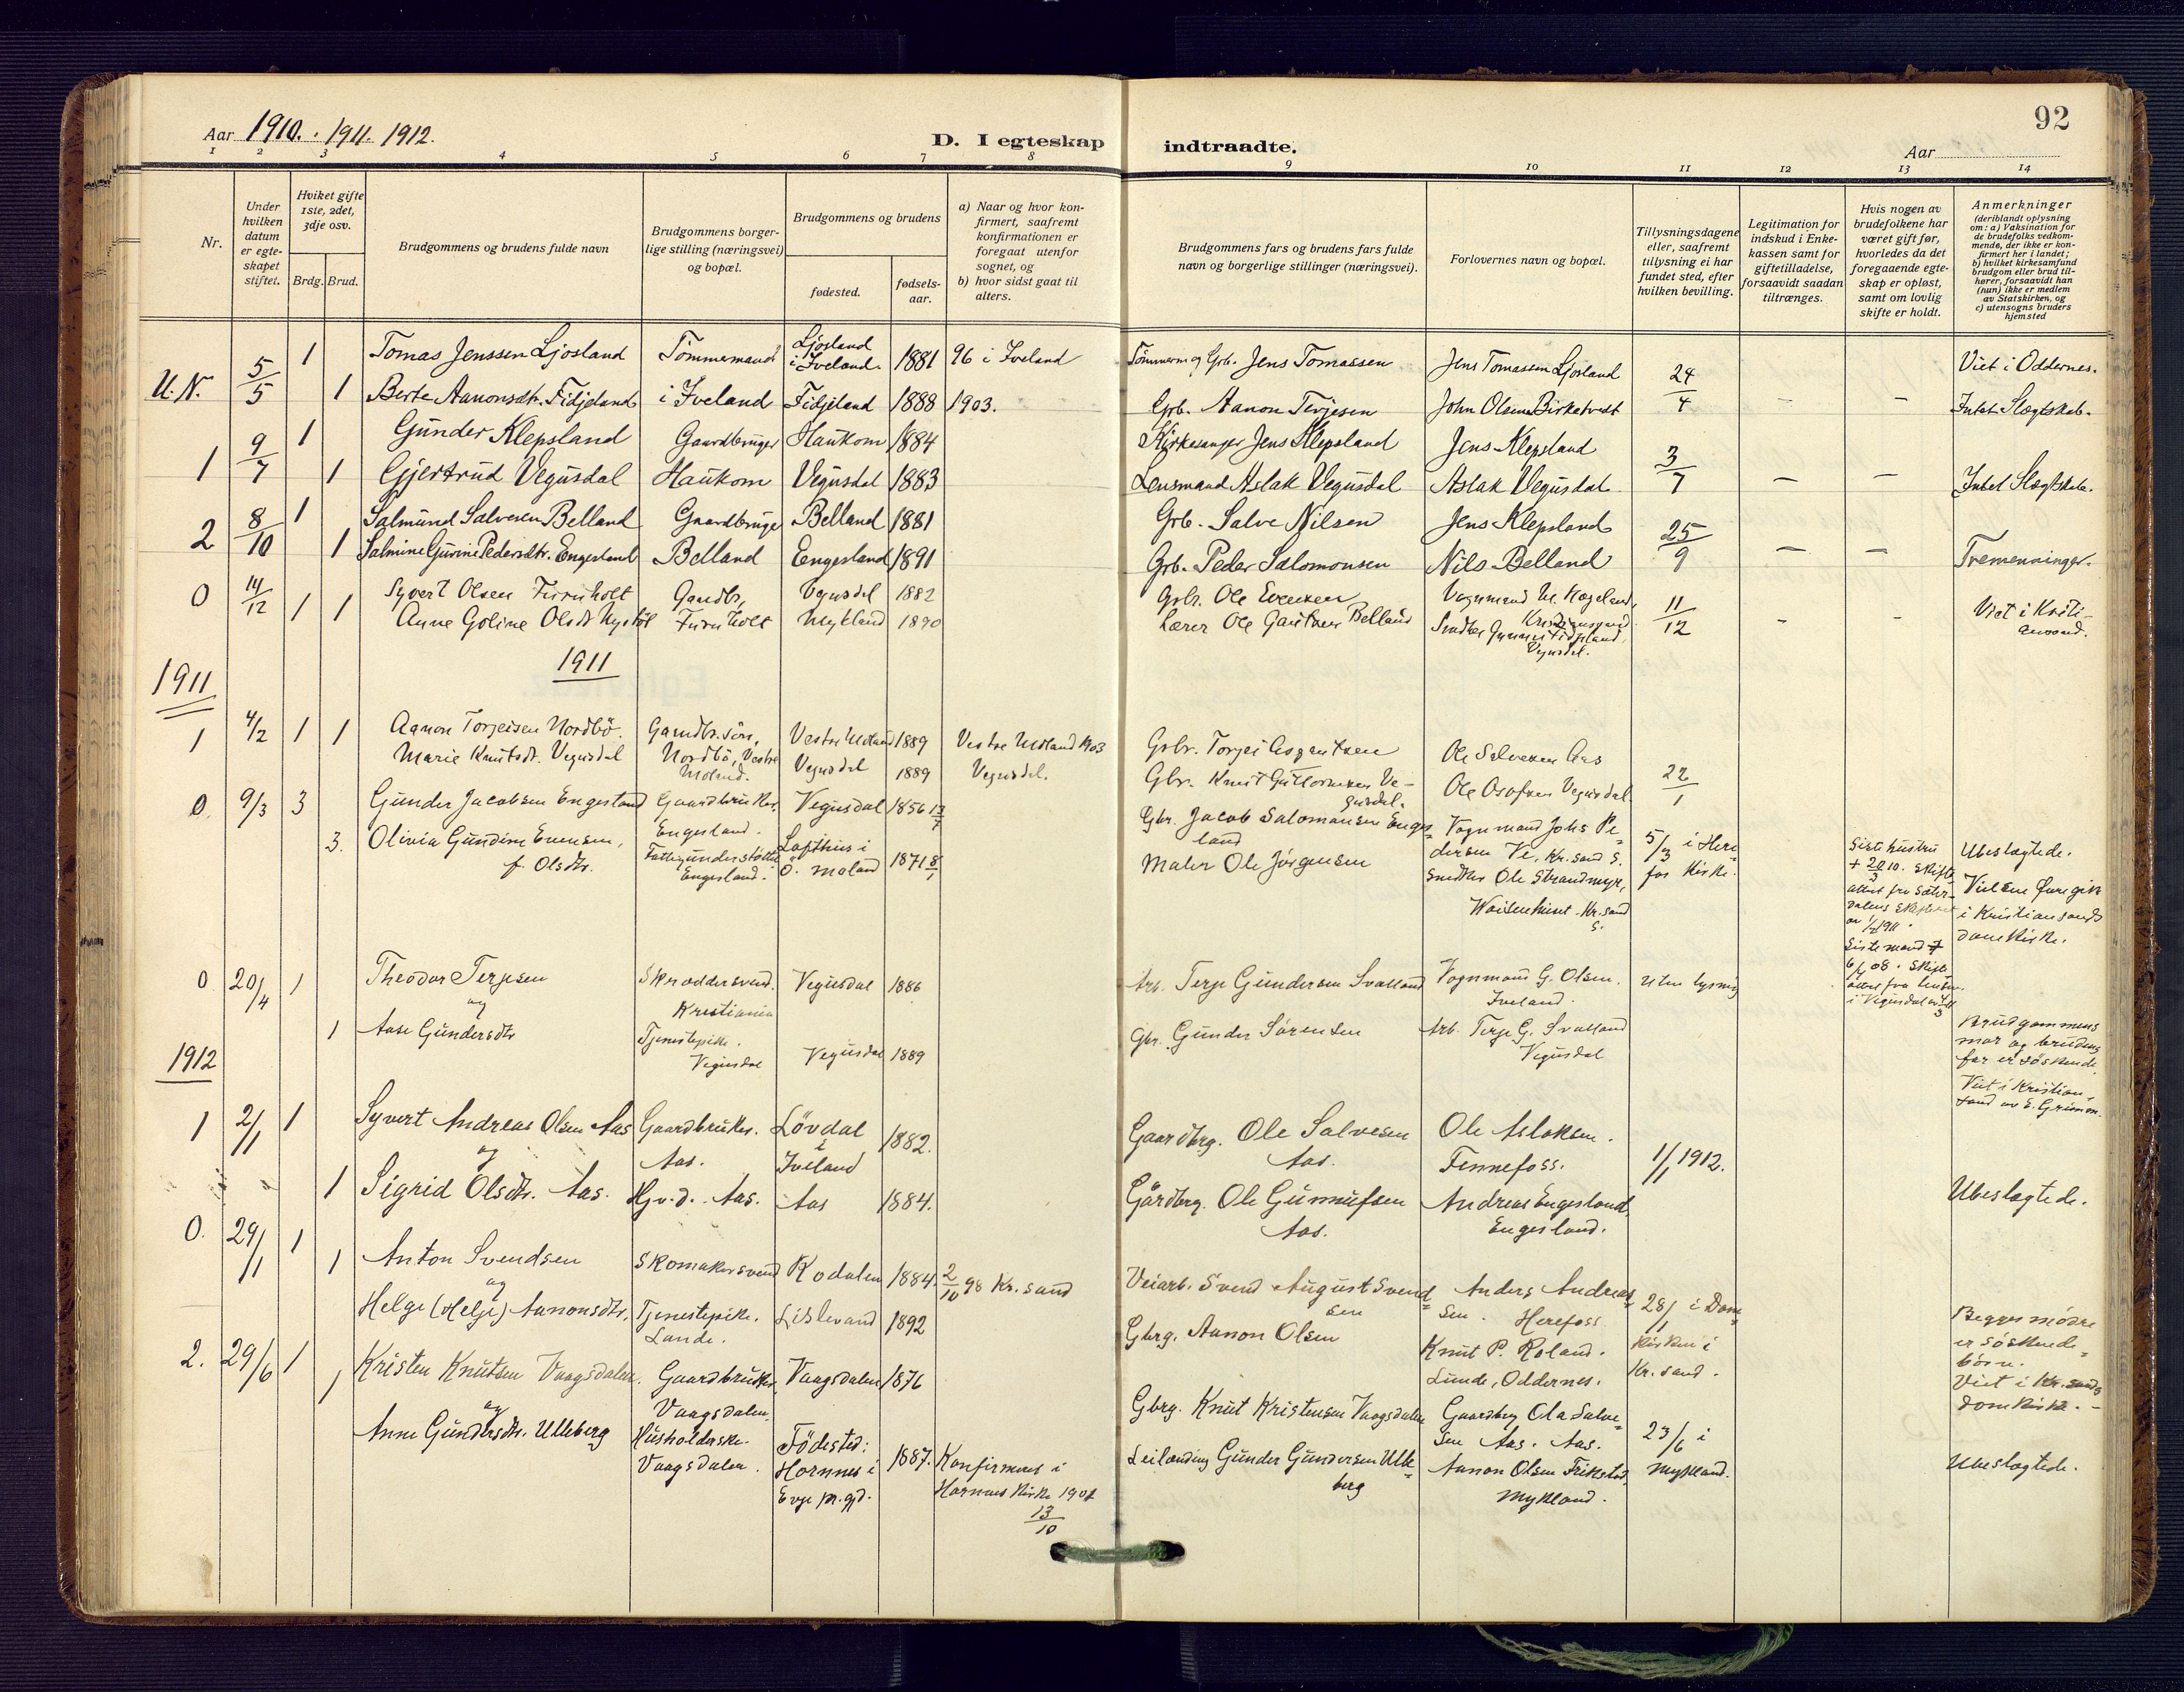 92
Aar 1910. 1911. 1912.
D. I egteskap indtraadte.
Aar
1 2 3 4 5 6 7 8 9 10 11 12 13 14
Nr.
Under hvilken datum er egteskapet stiftet.
Hviket gifte 1ste, 2det, 3dje osv.
Brdg. Brud.
Brudgommens og brudens fulde navn
Brudgommens borgerlige stilling (næringsvei) og bopæl.
Brudgommens og brudens
fødested.
fødselsaar.
a) Naar og hvor konfirmert, saafremt konfirmationen er foregaat utenfor sognet, og
b) hvor sidst gaat til alters.
Brudgommens fars og brudens fars fulde navn og borgerlige stillinger (næringsvei).
Forlovernes navn og bopæl.
Tillysningsdagene eller, saafremt tillysning ei har fundet sted, efter hvilken bevilling.
Legitimation for indskud i Enkekassen samt for giftetilladelse, forsaavidt saadan tiltrænges.
Hvis nogen av brudefolkene har været gift før, hvorledes da det foregaaende egteskap er opløst, samt om lovlig skifte er holdt.
Anmerkninger (deriblandt oplysning om: a) Vaksination for de brudefolks vedkommende, der ikke er konfirmert her i landet; b) hvilket kirkesamfund brudgom eller brud tilhører, forsaavidt han (hun) ikke er medlem av Statskirken, og c) utensogns bruders hjemsted
U. N. 5/5 1 Tomas Jenssen Ljosland Tömmermand Ljosland i Iveland. 1881 96 i Iveland Tömmerm og Grb. Jens Tomassen Jens Tomassen Ljosland 24/4 Viet i Oddernes.
1 Berte Aanonsdtr. Fidjeland i Iveland Fidjeland 1888 1903. Grb. Aanon Terjesen John Olsen Birketvedt - - Intet Slægtskab.
1 9/7 1 Gunder Klepsland Gaardbruger Haukom 1884 Kirkesanger Jens Klepsland Jens Klepsland 3/7
1 Gjertrud Vegusdal Haukom Vegusdal 1883 Lensmand Aslak Vegusdal Aslak Vegusdal - - Intet Slægtskab.
2 8/10 1 Salmund Salvesen Belland Gaardbruge Belland 1881 Grb. Salve Nilsen Jens Klepsland 25/9
1 Salmine Gurine Pedersdtr. Engesland Belland Engesland 1891 Grb. Peder Salomonsen Nils Belland - - Tremenninger.
0 14/12 1 1 Syvert Olsen Furuholt Gaardbr, Vegusdal 1882 Grbr. Ole Evensen Vognmand Hægeland, Kristianssand 11/12 - - Viet i Kristianssand.
Anne Goline Olsdt Nystöl Furuholt Mykland 1890 Lærer Ole Gauthen Belland Fidjeland, Vegusdal.
1911
1911
1 4/2 1 1 Aanon Torjeisen Nordbö. Gaardbr. sön, Vestre Moland 1889 Vestre Moland 1903 Grbr. Torjei Ole Salvesen Aas 22/1
Marie Knutsdt. Vegusdal Nordbö, Vestre Moland. Vegusdal 1889 Vegusdal. Gbr. Knut Guttormsen Vegusdal. Ole Vegusdal
0 9/3 3 Gunder Jacobsen Engesland Gaardbruker. Engesland. Vegusdal 1856 13/7 Gbr. Jacob Salomonsen Engesland Vognmand Johs Pedersen Ve, Kr. sand S. 5/3 i Herefos Kirke.
3. Olivia Gundine Evensen, f. Olsdtr. Fattigunderstöttet Engesland. Lofthus i Ö. Moland 1871 8/1 Maler Ole Jörgensen Snedker Ole Strandmyr, Waisenhuset. Kr. sand S.
Siste hustru + 20/3 10. Skifteattest fra Sætersdalens av 1911. Siste mand + 6/4 08. Skifteattest fra Lensm. i Vegusdal
Ubeslægtede. Vielsen foregik i Kristianssands domkirke.
0 20/4 1 Theodor Terjesen Skræddersvend. Kristiania Vegusdal 1886 Arb. Terje Gundersen Svaland Vognmand G. Olsen. Iveland. Uten lysning
og
1 Aase Gundersdtr Tjenestepike. Vegusdal Vegusdal 1889 Gbr. Gunder Sörensen Arb. Terje G. Svaland Vegusdal
Brudgommens mor og brudens far er söskende. Viet i Kristianssand av E. Grimm.
1912
1 2/1 1 Syvert Andreas Olsen Aas Gaardbruker. Aas. Lövdal i Iveland 1882. Gaardbrg. Ole Salvesen Aas. Ole Aslaksen. Fennefoss. 1/1 1912.
og
1 Sigrid Olsdtr. Aas. Hjv. d. Aas. Aas 1884. Gårdbrg. Ole Gunnufsen Aas. Andreas Engesland, Engesland. Ubeslægtede.
0. 29/1 1 Anton Svendsen Skomakersvend Rodalen 1884. 2/10 98 Kr. sand Veiarb. Svend August Svendsen Anders Andreassen. Herefoss 28/1 i Domkirken i Kr. sand.
og
1 Helge (Helje) Aanonsdtr. Tjenestepike. Lunde. Lislevand 1892 Gbrg. Aanon Olsen Knut P. Roland. Lunde, Oddernes.
Begges mödre er söskendebörn. Viet i Kr. sands domkirke. -
2. 29/6 1 Kristen Knutsen Vaagsdalen. Gaardbruker, Vaagsdalen. Vaagsdalen 1876 Gbrg. Knut Kristensen Vaagsdalen Gaardbrg Ola Salvesen Aas. Aas. 23/6 i Mykland.
og
1 Anne Gundersdtr. Ulleberg Husholderske. Vaagsdalen. Födested: Hornnes i Evje pr. gjd. 1887. Konfirmert i Hornnes Kirke 1901 13/10 Leilænding Gunder Gundersen Ulleberg Aanon Olsen Frikstad, Mykland. Ubeslægtede.